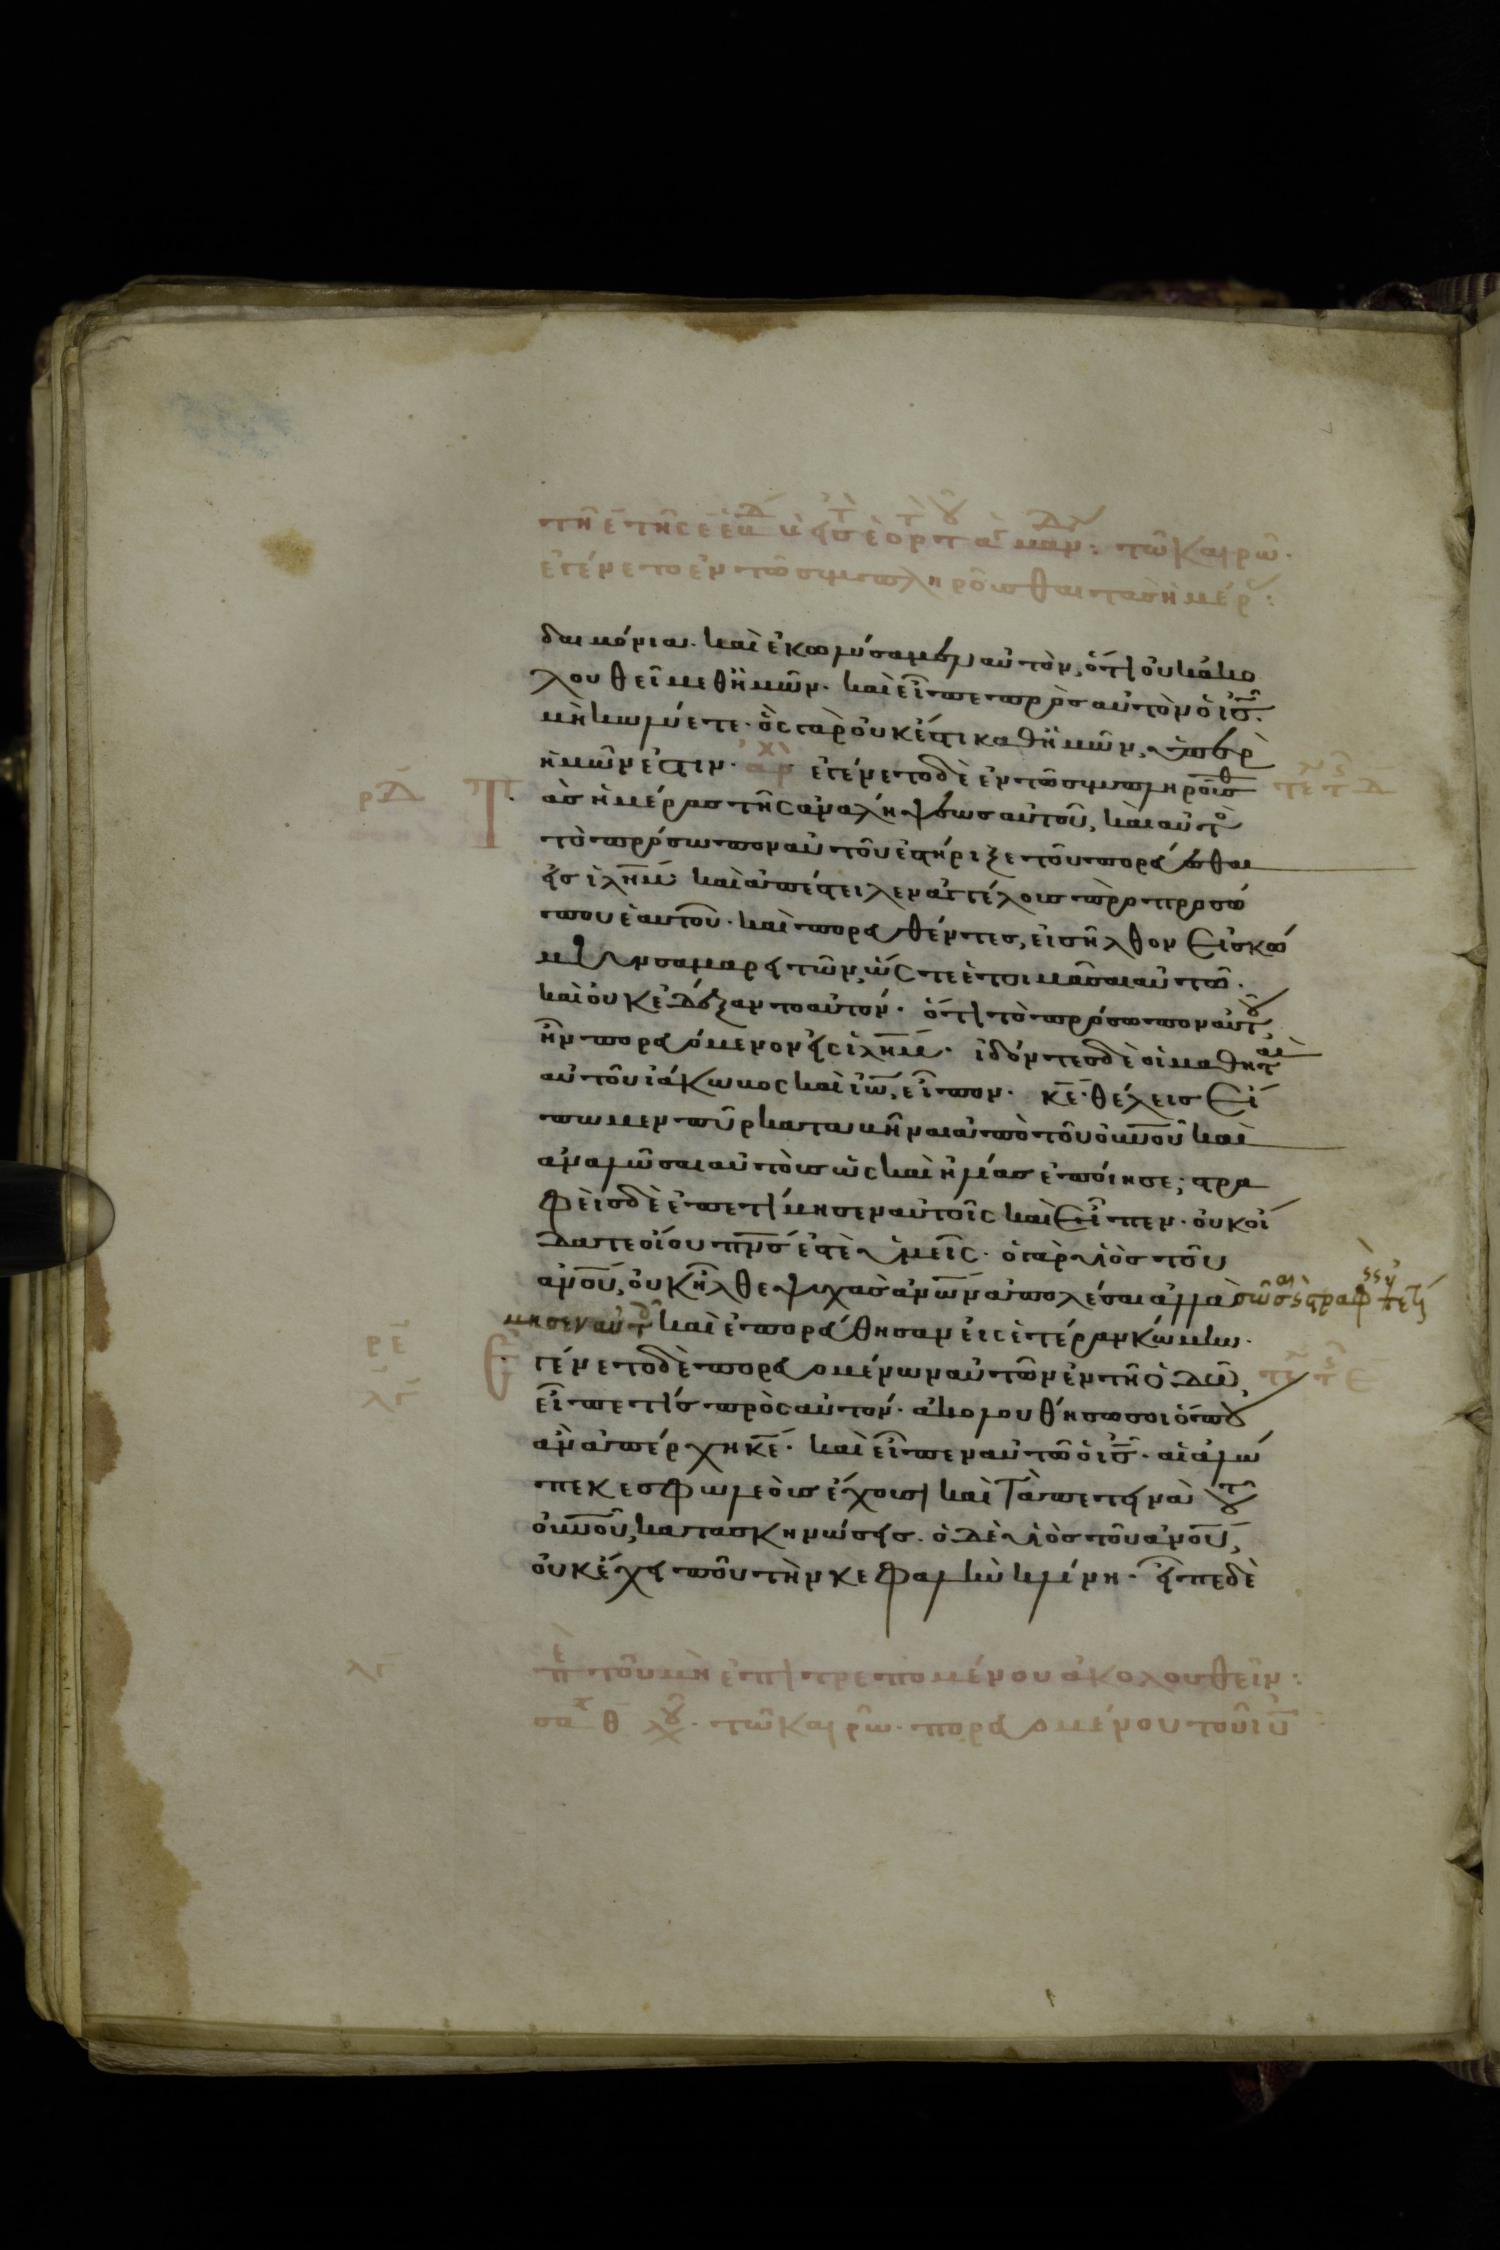 ἐγένετο ἐν τῶ συμπληροῦσθαι τὰς ἡμέρ:
δαιμόνια. καὶ ἐκωλύσαμεν αὐτὸν, ὅτι οὐκ ἀκο
λουθεῖ μεθ ἡμῶν. καὶ εἶπε πρὸς αὐτὸν ὁ ις.
μὴ κωλύετε. ὃς γὰρ οὐκ ἔστι καθ ἡμῶν, ὑπὲρ
ἡμῶν ἐστιν. ἀρχ ἐγένετο δὲ ἐν τῶ συμπληροῦσθ
Τ ὰς ἡμέρας τῆς ἀναλήψεως αὐτοῦ, καὶ αὐτὸ
τὸ πρόσωπον αὐτοῦ ἐστήριξε τοῦ πορεύεσθαι
εἰς ιλημ. καὶ ἀπέστειλεν ἀγγέλους πρὸ προσώ
που ἑαυτοῦ. καὶ πορευθέντες, εἰσῆλθον εἰς κώ
μην σαμαρειτῶν, ὥστε ἑτοιμᾶσαι αὐτῶ.
καὶ οὐκ ἐδέξαντο αὐτόν. ὅτι τὸ πρόσωπον αὐτοῦ,
ἦν πορευόμενον εἰς ιλημ. ἰδόντες δὲ οἱ μαθηταὶ
αὐτοῦ ἰάκωβος καὶ ἰω, εἶπον. κε. θέλεις εἴ
πωμεν πῦρ καταβῆναι ἀπὸ τοῦ οὐνοῦ καὶ
ἀναλῶσαι αὐτοὺς ὡς καὶ ἠλίας ἐποίησε; στρα
φεὶς δὲ ἐπετίμησεν αὐτοῖς καὶ εἶπεν. οὐκ οἴ
δατε οἵου πνς ἐστὲ ὑμεῖς. ὁ γὰρ υἱὸς τοῦ
ἀνου, οὐκ ἦλθε ψυχὰς ἀνων ἀπολέσαι ἀλλὰ σῶσαι
καὶ ἐπορεύθησαν εἰς ἑτέραν κώμην.
ρε Ἐ γένετο δὲ πορευομένων αὐτῶν ἐν τῆ ὁδῶ,
εἶπε τίς πρὸς αὐτόν. ἀκολουθήσω σοι ὅπου
ἂν ἀπέρχη κε. καὶ εἶπεν αὐτῶ ὁ ις. αἱ ἀλώ
πεκες φωλεοὺς ἔχουσι καὶ τὰ πετεινὰ τοῦ
οὐνοῦ, κατασκηνώσεις. ὁ δὲ υἱὸς τοῦ ἀνου,
οὐκ ἔχει ποῦ τὴν κεφαλὴν κλίνη. εἶπε δὲ
τοῦ μὴ ἐπιτρεπομένου ἀκολουθεῖν:
τῶ καιρῶ. πορευομένου τοῦ ιυ